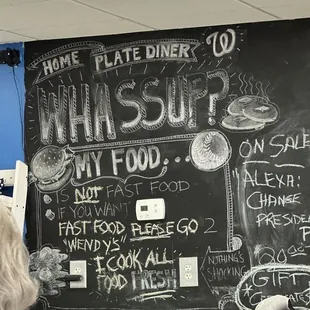 HOME PLATE DINER W
WHASSUP?
MY FOOD...
IS NOT FAST FOOD
IF YOU WANT
FAST FOOD PLEASE GO 2
"WENDY'S"
I COOK ALL
FOOD FRESH
NOTHING'S
SHAKING
ON SALE
"ALEXA:
CHANGE
PRESIDE
20
GIFT